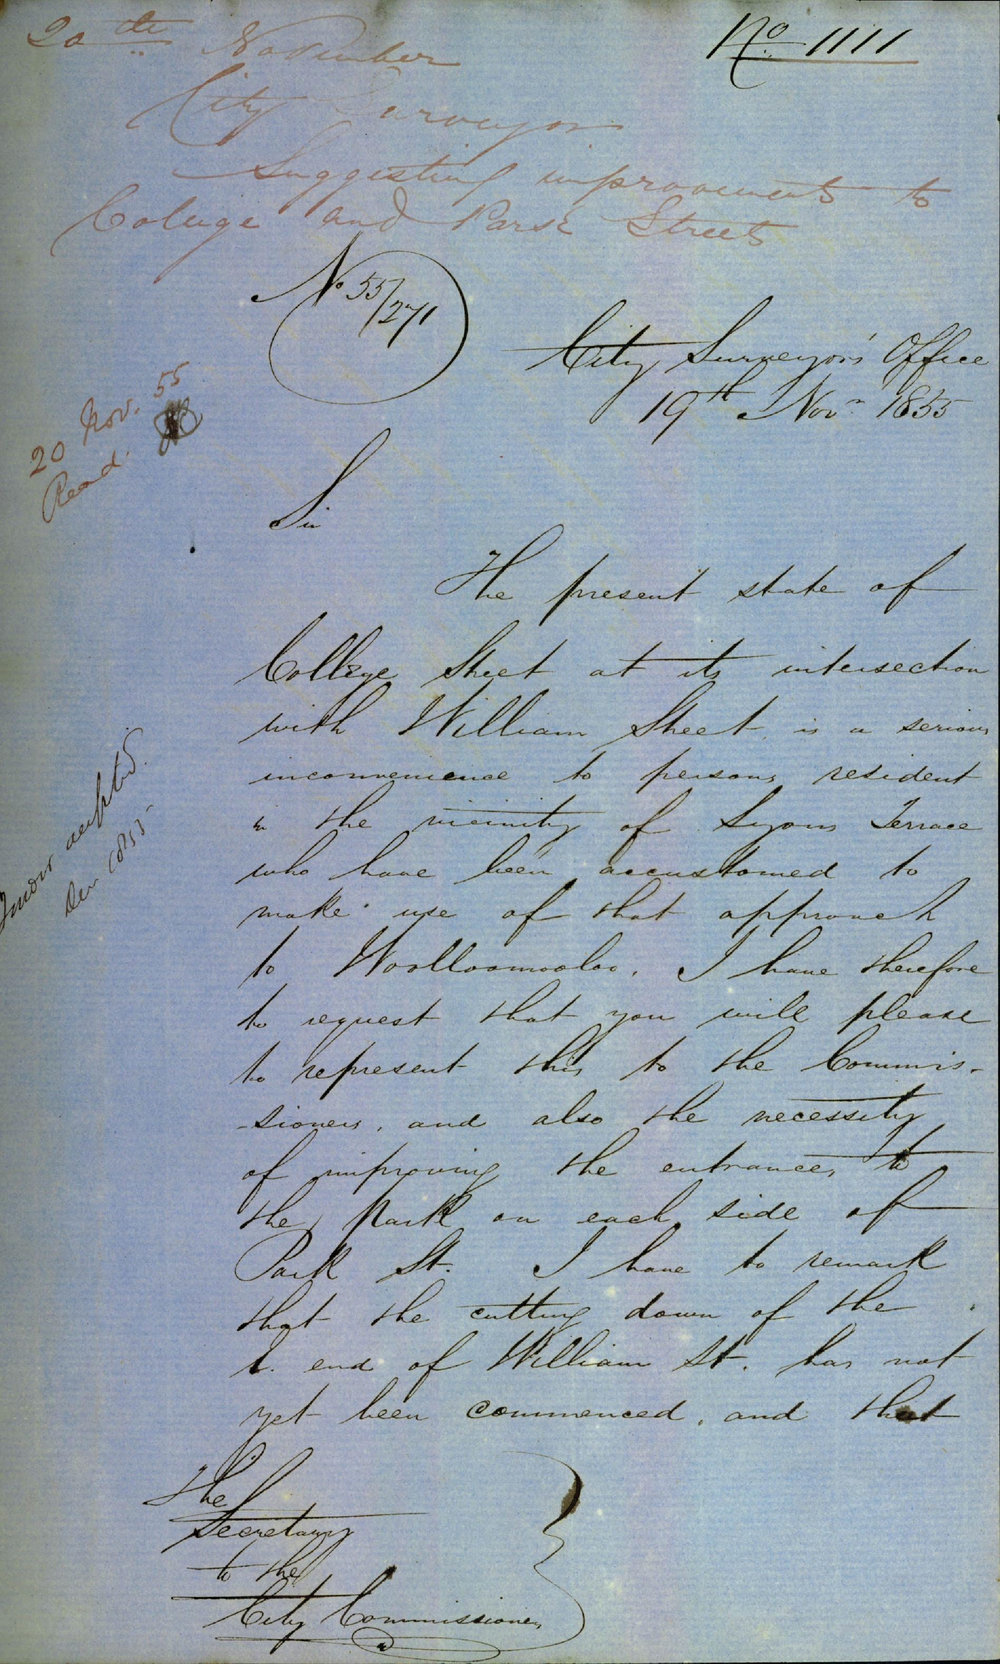 No. 1111
20th November
City Surveyor
Suggesting improvements to
College and Park Streets
No 55/271
City Surveyor's Office
19th Novr 1855
20 Nov. 55
Read.
Sir
The present state of
College Street at its intersection
with William Street, is a serious
inconvenience to persons resident
in the vicinity of Lyons Terrace
who have been accustomed to
make use of that approach
to Woolloomooloo. I have therefore
to request that you will please
to represent this to the Commis-
-sioners, and also the necessity
of improving the entrances to
the Park on each side of
Park St. I have to remark
that the cutting down of the
end of William St. has not
yet been commenced, and that
accepted.
1855
The
Secretary
to the
City Commissioners